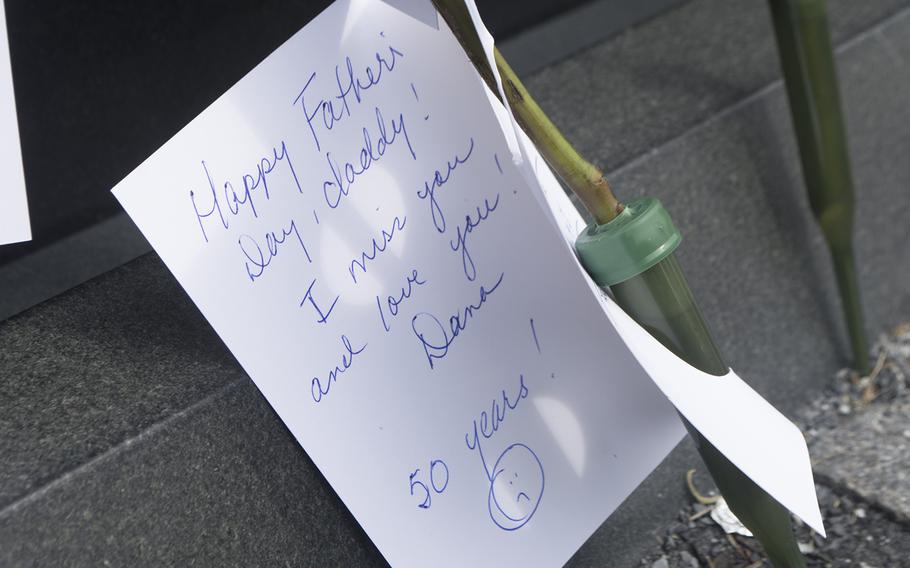 Happy Fathers
Day, daddy!
I miss you
and love you!
Dana
50 years!